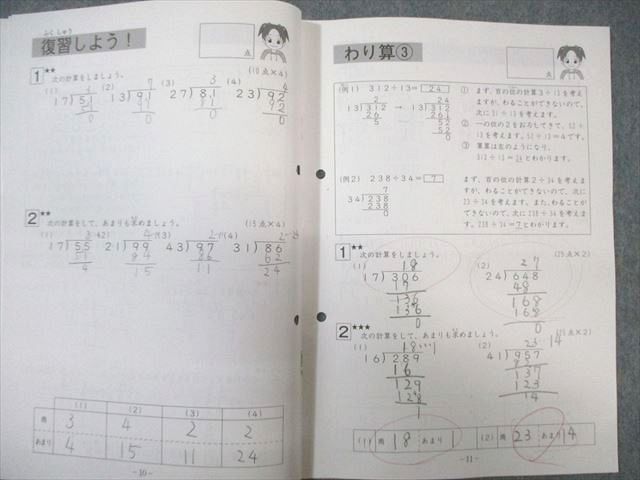 ふくしゅう
復習しよう！
点
1 ★★ 次の計算をしましょう。 (10点×4)
(1) (2) (3) (4)
3 7 3 4
17)51 13)91 27)81 23)92
51 91 81 92
0 0 0 0
2 ★★ 次の計算をして、あまりも求めましょう。 (15点×4)
(1) (2) (3) (4)
17)55 21)99 43)97 31)86
51 84 86 62
4 15 11 24
(1) (2) (3) (4)
商 3 4 2 2
あまり 4 15 11 24
-10-
わり算③
点
(例1) 312÷13=24
2 24
13)312 → 13)312
26 26
5 52
52
0
① まず、百の位の計算3÷13を考え
ますが、わることができないので、
次に31÷13を考えます。
② 一の位の2をおろしてきて、52÷
13を考えます。52÷13=4です。
③ 筆算は左のようになり、
312÷13=24とわかります。
(例2) 238÷34=7
7
34)238
238
0
まず、百の位の計算2÷34を考えま
すが、わることができないので、次に
23÷34を考えます。また、わることが
できないので、次に238÷34を考えま
す。238÷34=7とわかります。
1 ★★ 次の計算をしましょう。 (25点×2)
(1) (2)
18 27
17)306 24)648
17 48
136 168
136 168
0 0
2 ★★★ 次の計算をして、あまりも求めましょう。 (25点×2)
(1) (2)
18…1 23 14
16)289 41)957
16 82
129 137
128 123
1 14
(1) 商 18 あまり 1 (2) 商 23 あまり 14
-11-